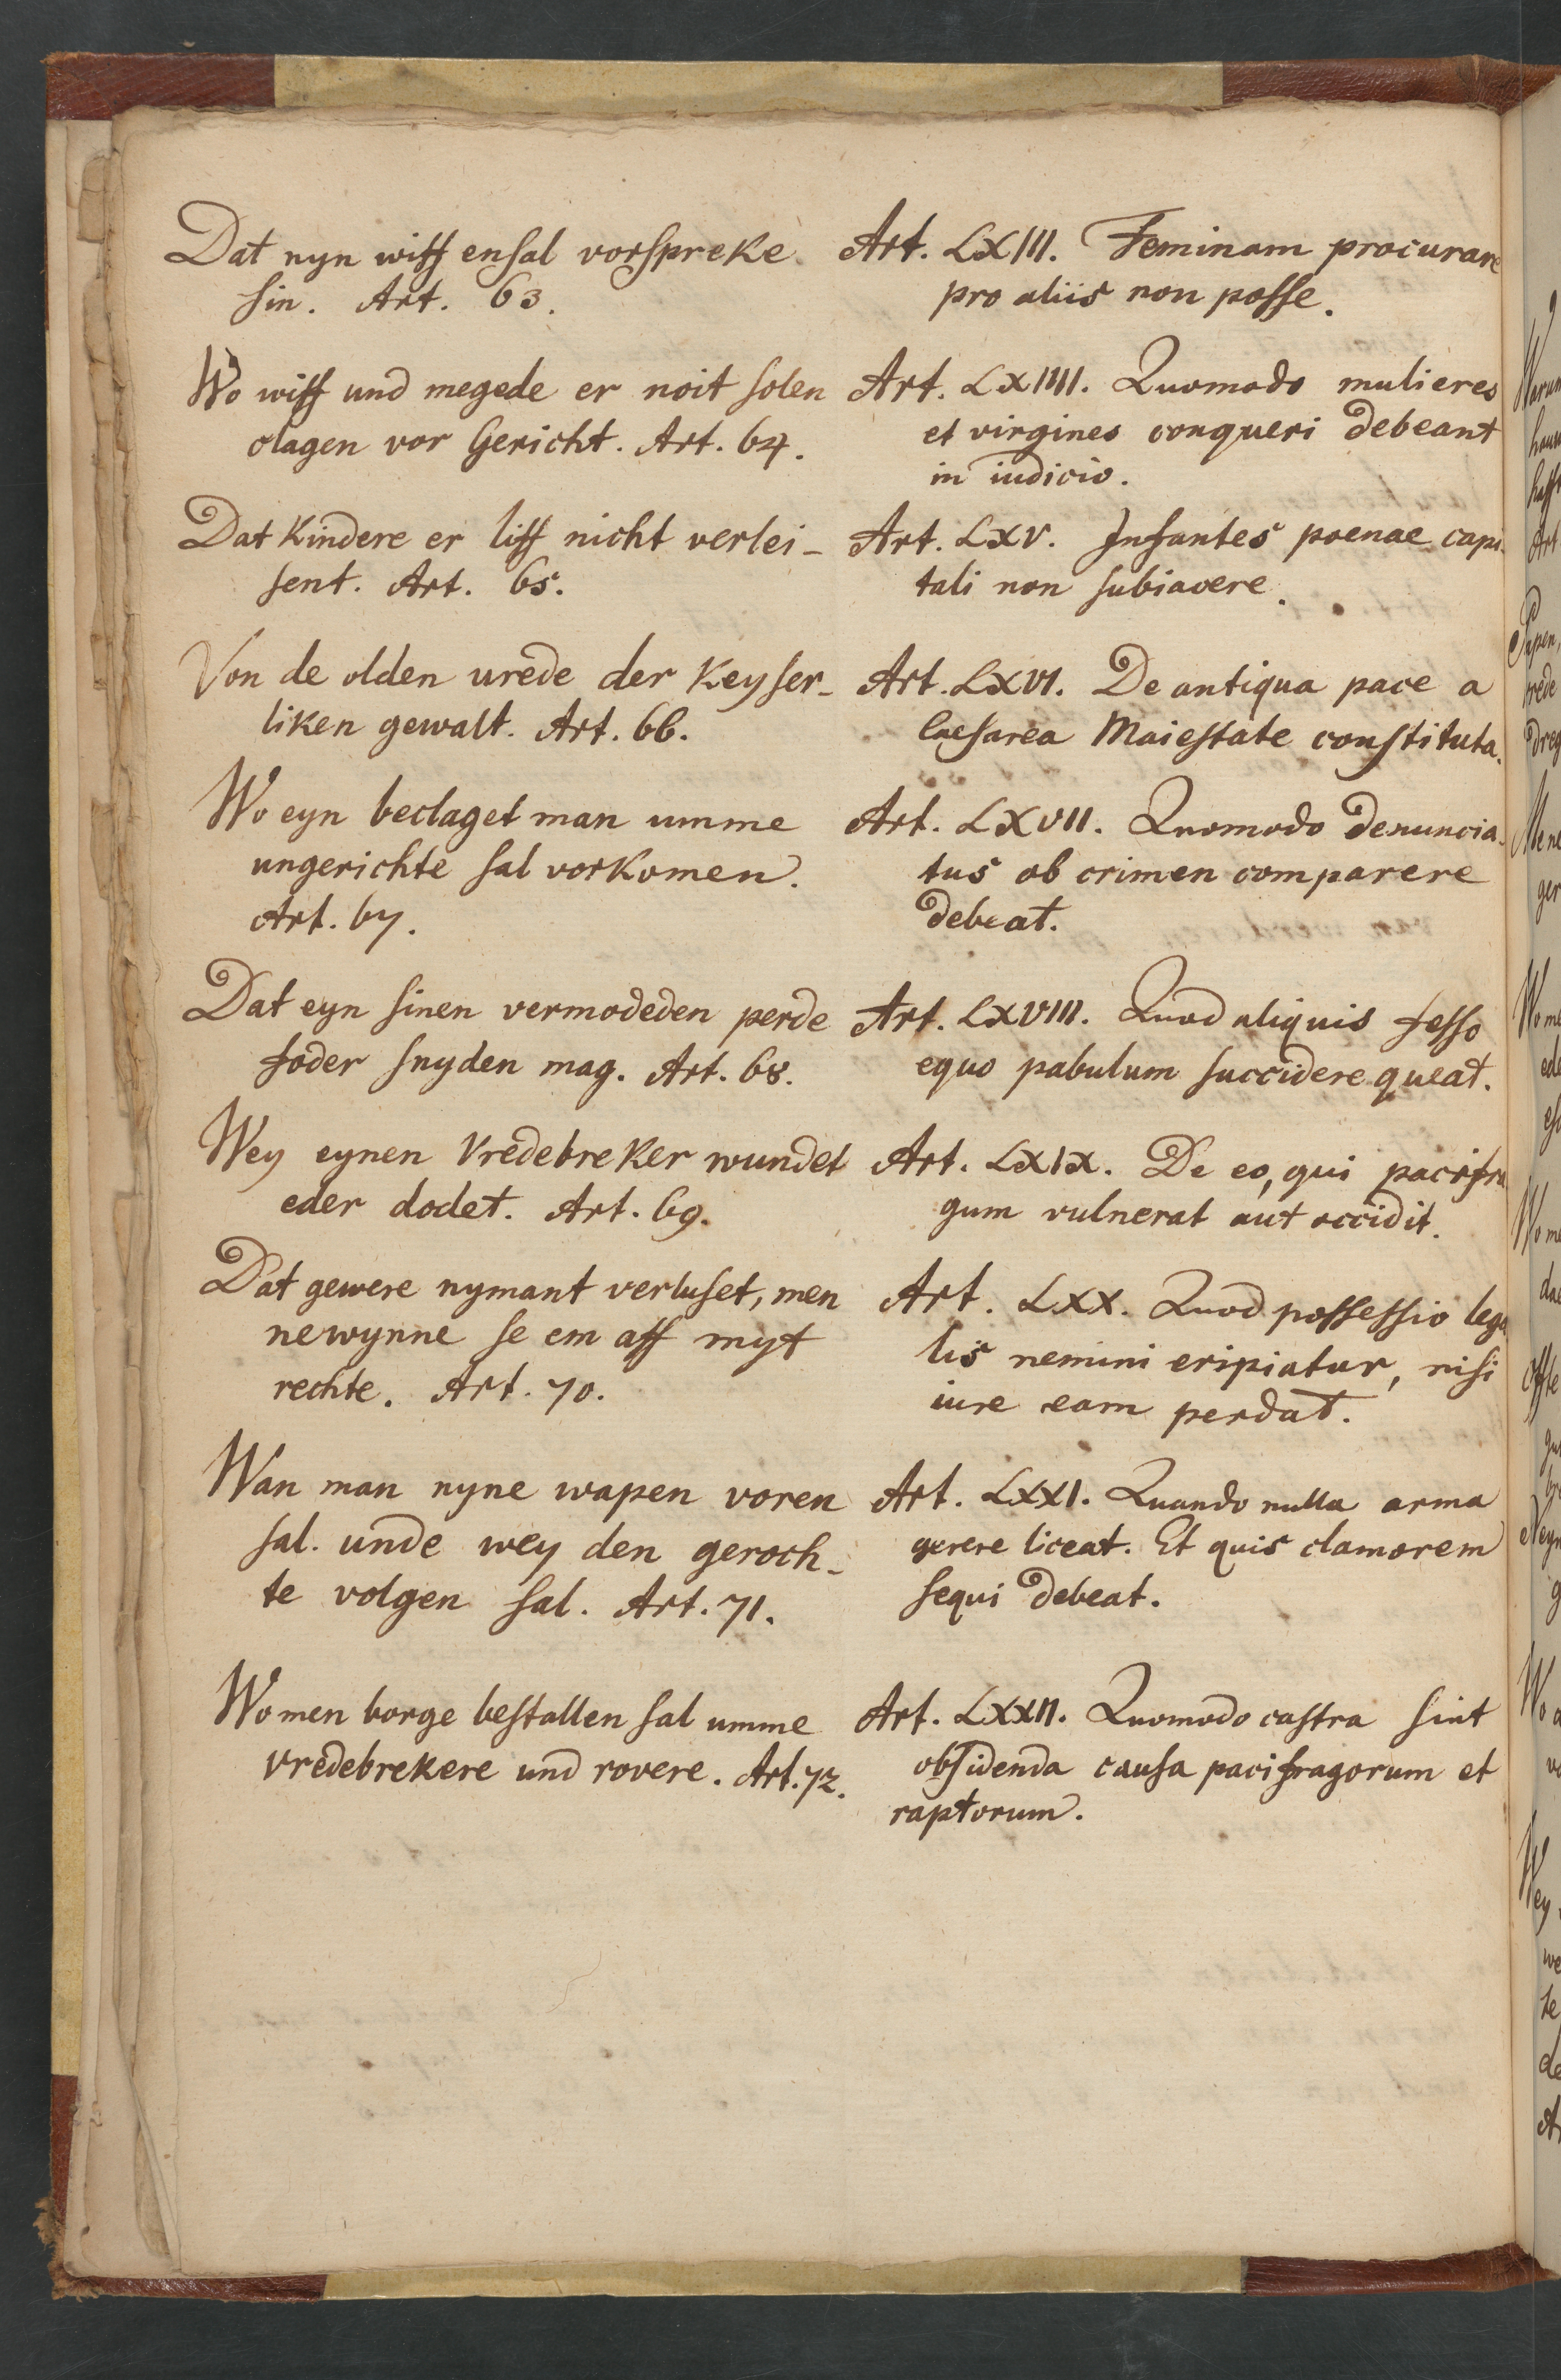 Dat nyn wiff ensal vorspreke
sin. Art. 63.
Wo wiff und megede er noit solen
clagen vor Gericht. Art. 64.
Dat Kindere er liff nicht verlei-
sent. Art. 65.
Von de olden urede der Keyser-
liken gewalt. Art. 66.
Wo eyn beclaget man umme
ungerichte sal vorkomen.
Art. 67.
Dat eyn sinen vermodeden perde
foder snyden mag. Art. 68.
Wey eynen Vredebreker wundet
eder dodet. Art. 69.
Dat gewere nymant verluset, men
newynne se em aff myt
rechte. Art. 70.
Wan man nyne wapen voren
sal. unde wey den geroch-
te volgen sal. Art. 71.
Wo men borge bestallen sal umme
vredebrekere und rovere. Art. 72.
Art. LXIII. Feminam procurare
pro aliis non posse.
Art. LXIIII. Quomodo mulieres
et virgines conqueri debeant
in iudicio.
Art. LXV. Infantes poenae capi-
tali non subiacere.
Art. LXVI. De antiqua pace a
Caesarea Maiestate constituta.
Art. LXVII. Quomodo denuncia-
tus ob crimen comparere
debeat.
Art. LXVIII. Quod aliquis fesso
equo pabulum succidere queat.
Art. LXIX. De eo, qui pacifra
gum vulnerat aut occidit.
Art. LXX. Quod possessio lega
lis nemini eripiatur, nisi
iure eam perdat.
Art. LXXI. Quando nulla arma
gerere liceat. Et quis clamorem
sequi debeat.
Art. LXXII. Quomodo castra sint
obsidenda causa pacifragorum et
raptorum.